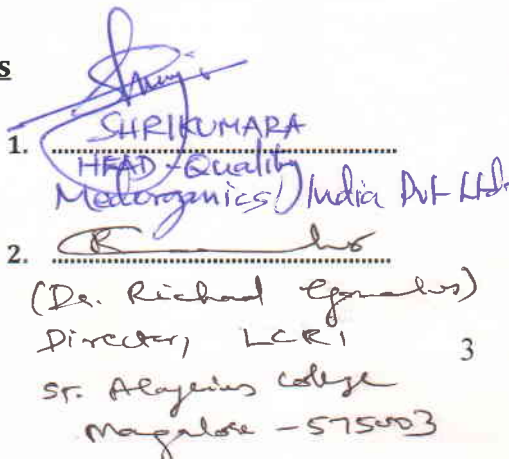 s
1. ........................
SHRIKUMARA
HEAD - Quality
Medorganics India Pvt Ltd.
2. ........................
(Dr. Richard Gonsalves)
Director, LCRI
St. Aloysius College
Mangalore - 575003
3